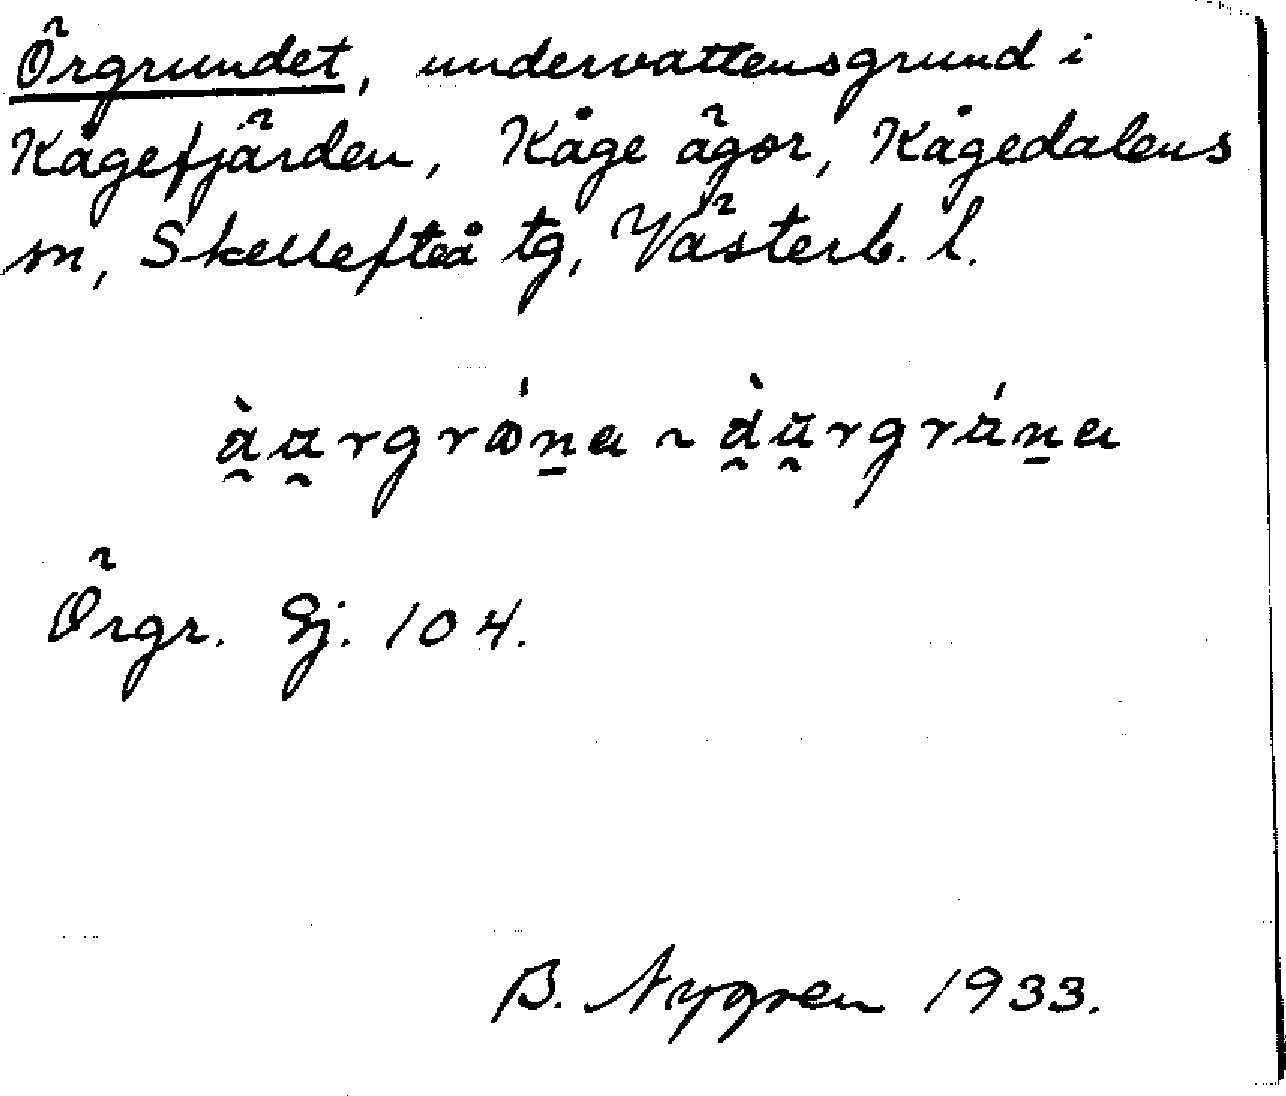 Örgrundet, undervattensgrund i
Kågefjärden, Kåge ägor, Kågedalens
sn, Skellefteå tg, Västerb. l.
Örgr. Sj. 104.
B. Nygren 1933.